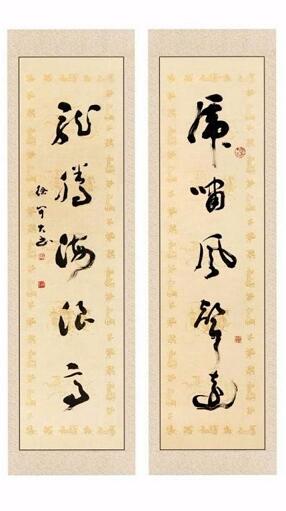 虎嘯风聲遠
龍騰海浪高